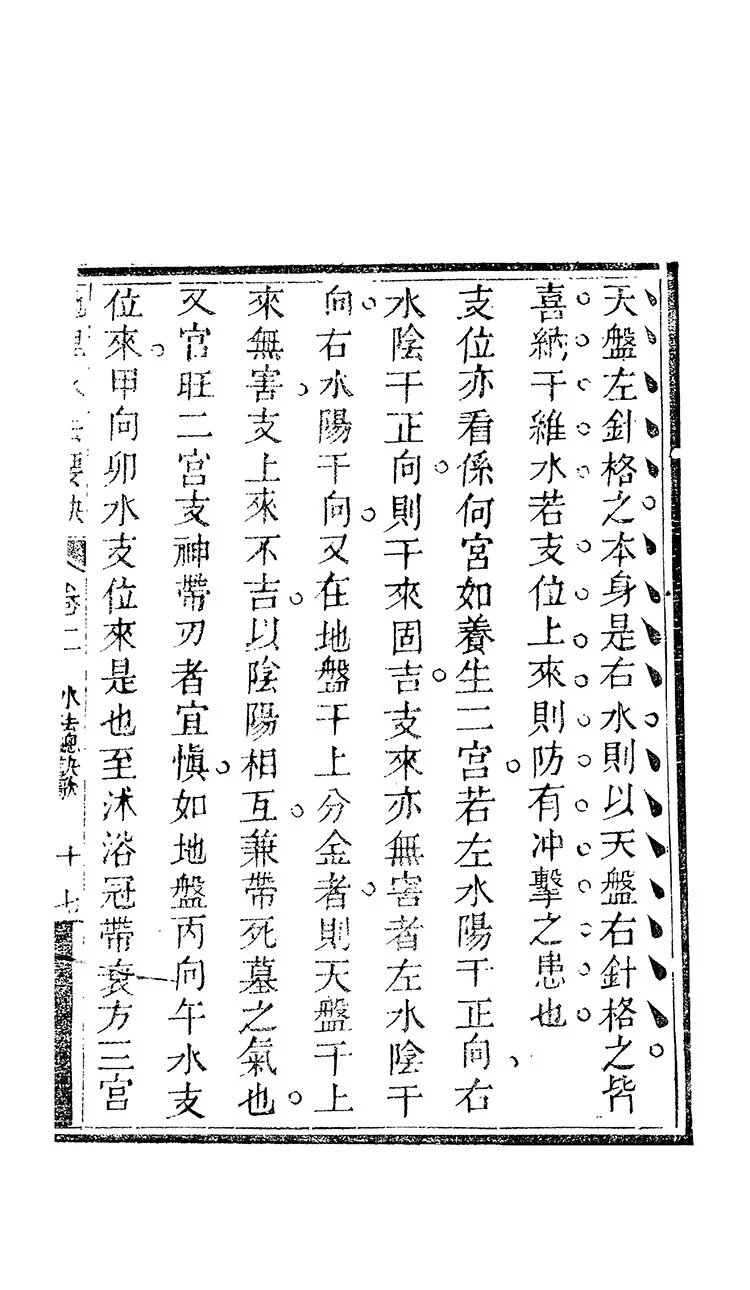 天盤左針格之本身是右水則以天盤右針格之皆
喜納干維水若支位上來則防有冲擊之患也
支位亦看係何宮如養生二宮若左水陽干正向右
水陰干正向則干來固吉支來亦無害者左水陰干
向右水陽干向又在地盤干上分金者則天盤干上
來無害支上來不吉以陰陽相互兼帶死墓之氣也
又官旺二宮支神帶刃者宜慎如地盤丙向午水支
位來甲向卯水支位來是也至沭浴冠帶衰方三宮
要訣 卷二 水法總訣歌 十七